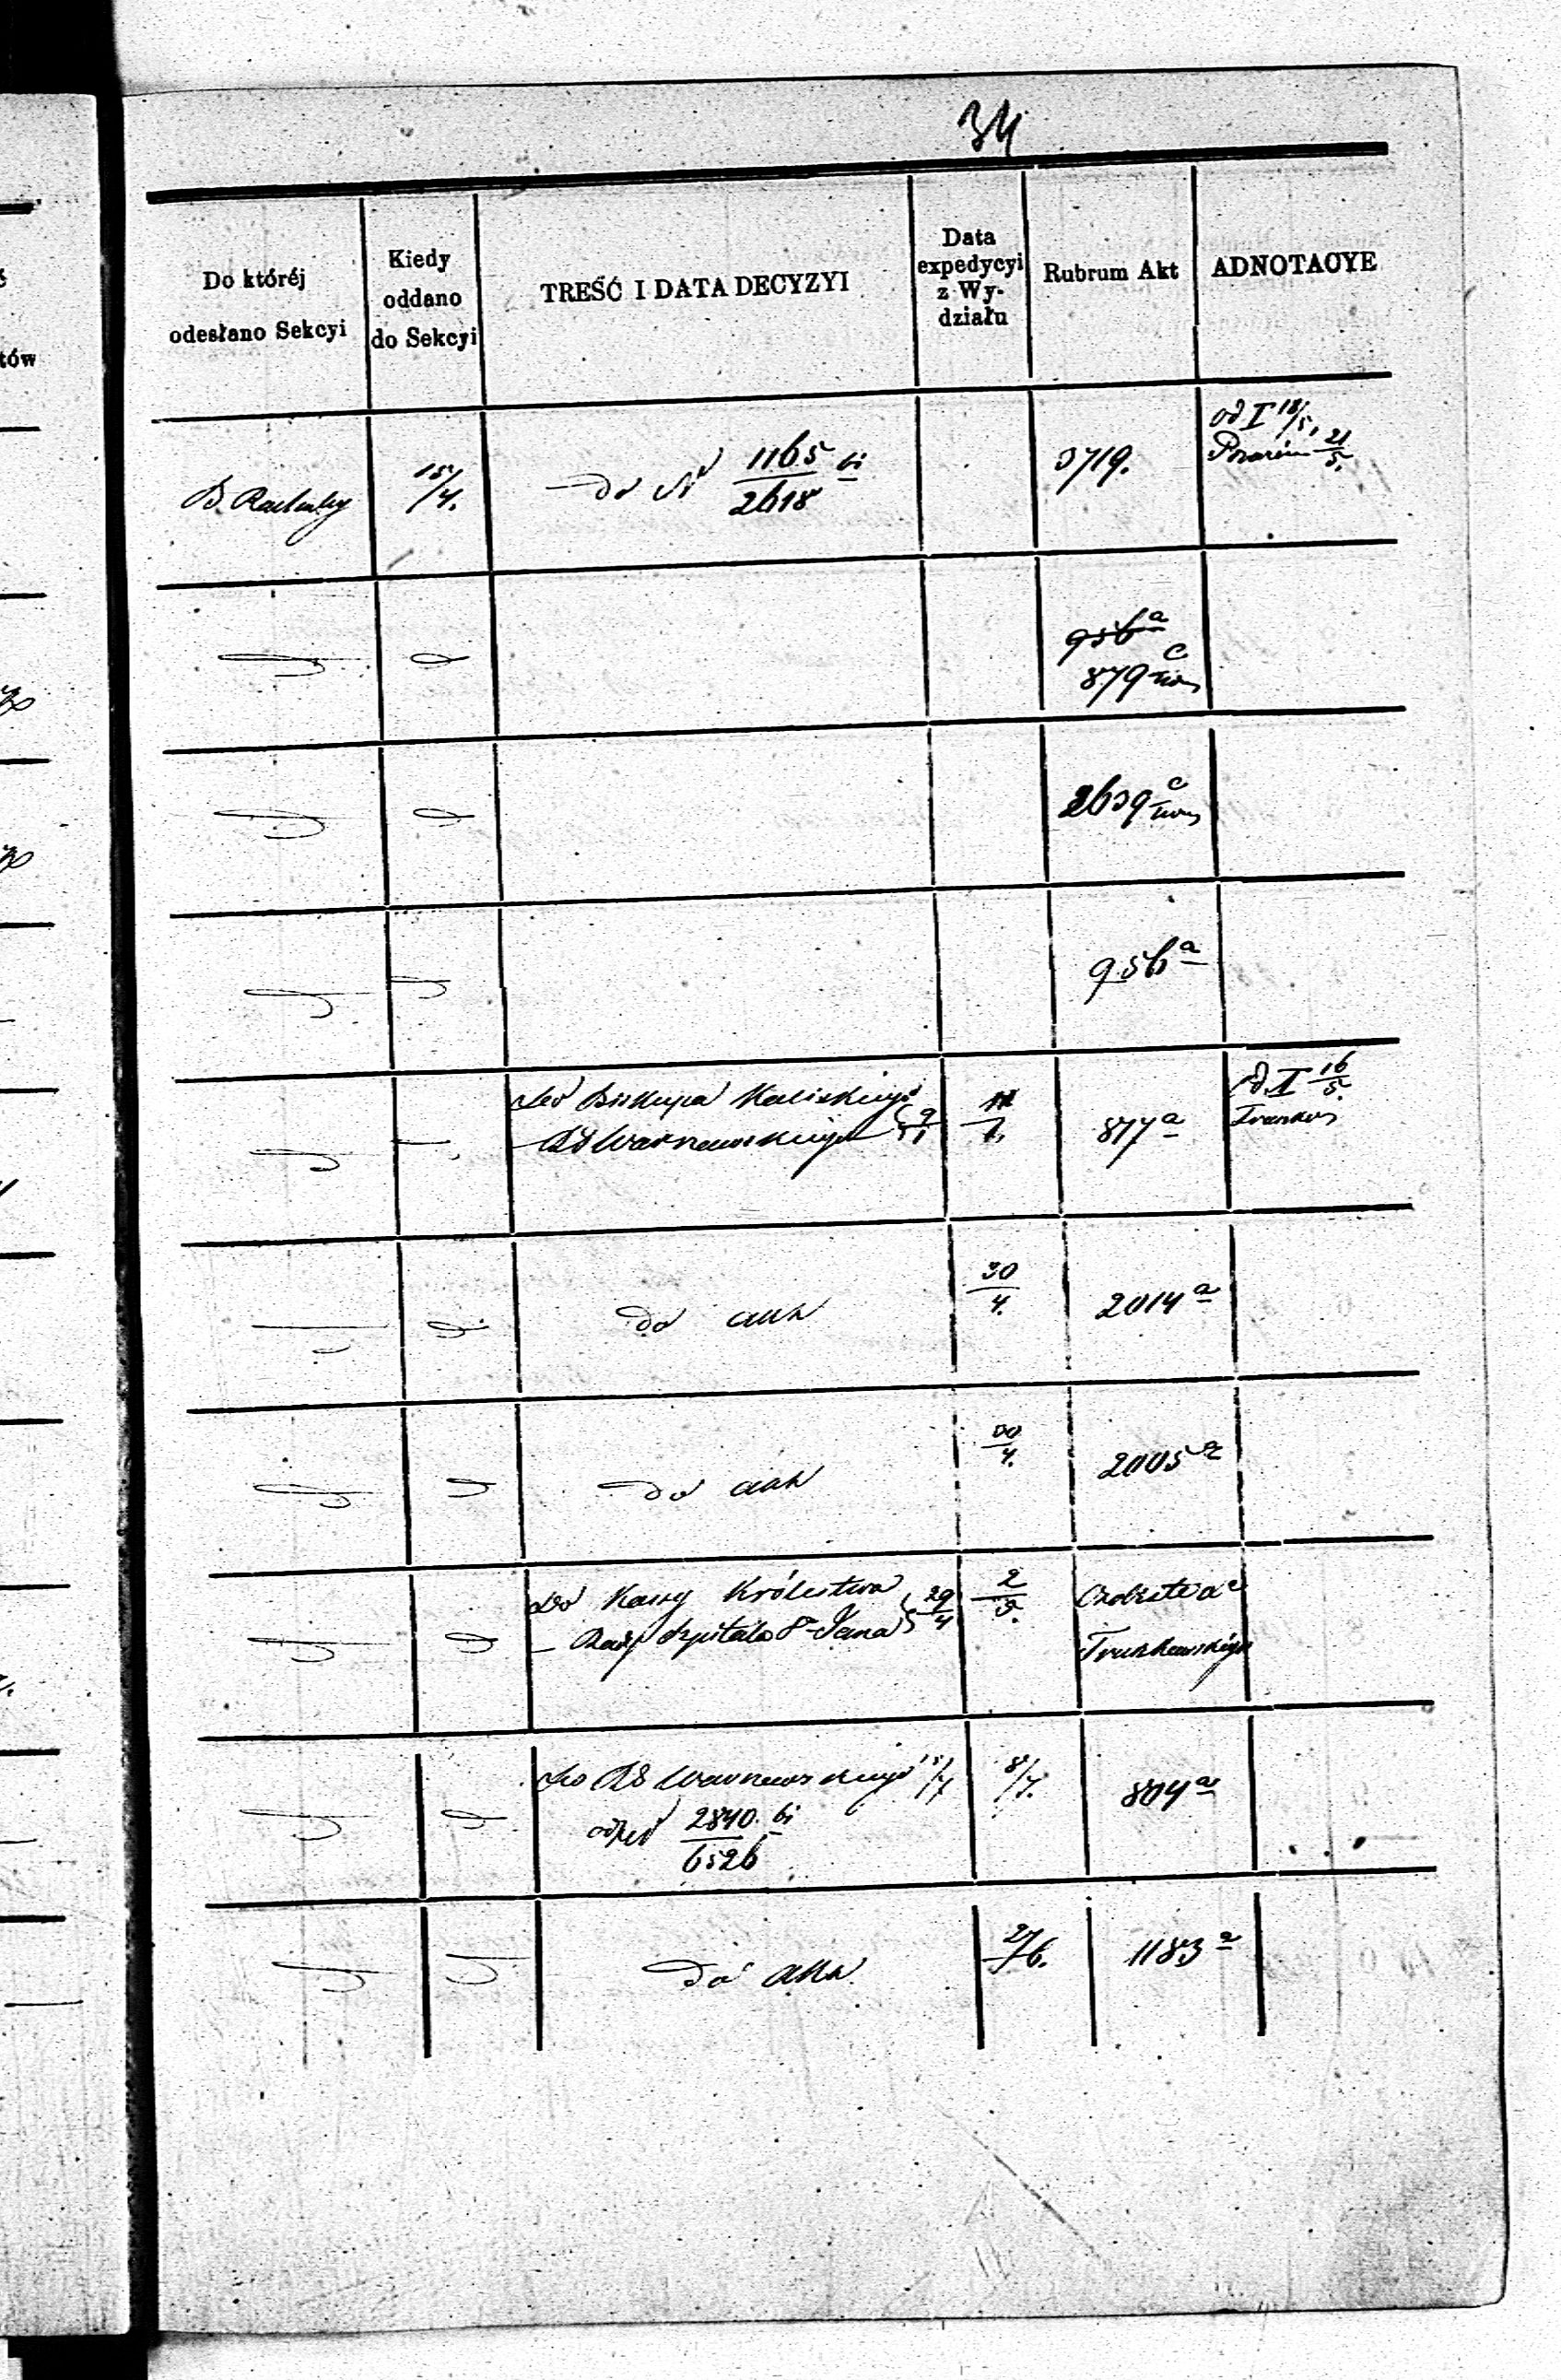 34
Do któréj
odesłano Sekcyi
Kiedy
oddano
do Sekcyi
TREŚĆ I DATA DECYZYI
Data
expedycyi
z Wy-
działu
Rubrum Akt
ADNOTACYE
tów
B.
15/4.
do N 1165/2618 bi
3719.
od I 18/5,
21/5.
956 a
879 c
2639 c
956 a
Do Biskupa Kaliskiego
RG Warszawskiego 9/1
877 a
od I 16/5.
do akt
30/4.
2014 a
do akt
30/4.
2005 a
Do Kassy Królestwa
Rady Szpitala S. Jana 29/4
2/5.
Do RG Warszawskiego
2840/6526 bi
8/7.
804 a
do akt
2/6.
1183 a